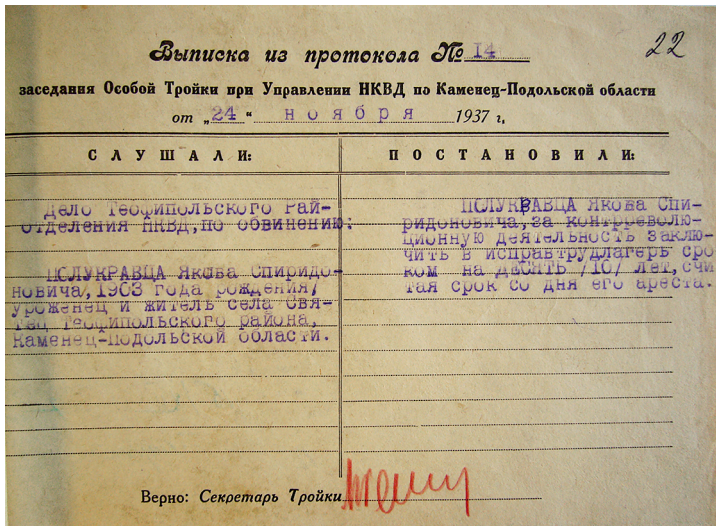 Выписка из протокола № 14
22
заседания Особой Тройки при Управлении НКВД по Каменец-Подольской области
от „24“ ноября 1937 г.
СЛУШАЛИ:
Дело Теофипольского Рай-
отделения НКВД, по обвинению:
ПОЛУКРАВЦА Якова Спиридо-
новича, 1903 года рождения,
уроженец и житель села Свя-
тец Теофипольского района,
Каменец-Подольской области.
ПОСТАНОВИЛИ:
ПОЛУКРАВЦА Якова Спи-
ридоновича, за контрреволю-
ционную деятельность заклю-
чить в исправтрудлагерь сро
ком на десять /10/ лет, счи
тая срок со дня его ареста.
Верно: Секретарь Тройки